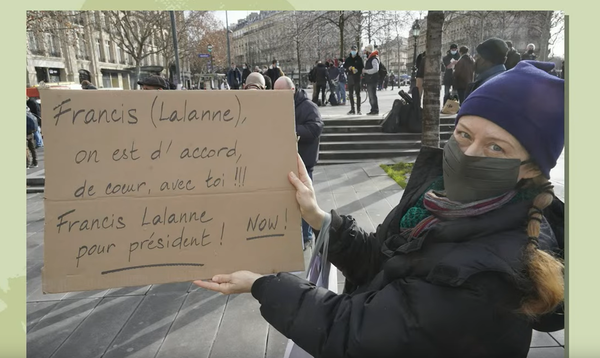 Francis (Lalanne),
on est d'accord,
de cœur, avec toi !!!
Francis Lalanne Now!
pour président !